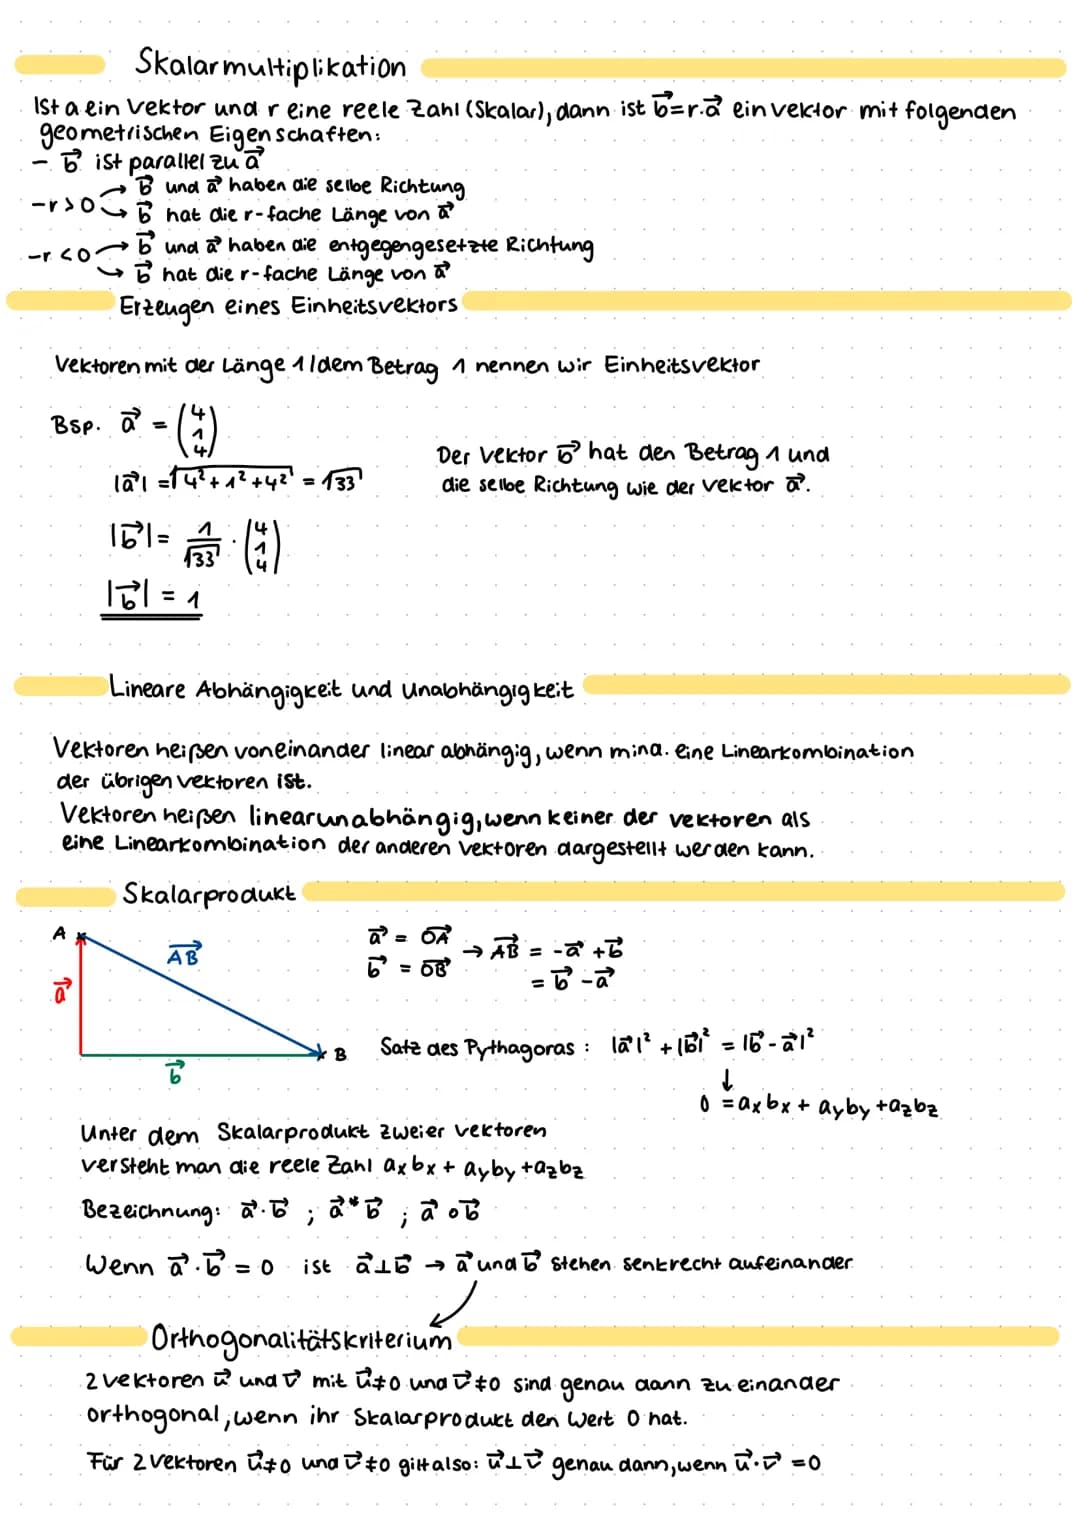 Skalarmultiplikation
Ist a ein Vektor und r eine reele Zahl (Skalar), dann ist b⃗=r.a⃗ ein vektor mit folgenden
geometrischen Eigenschaften:
- b⃗ ist parallel zu a⃗
-r>0 → b⃗ und a⃗ haben die selbe Richtung
→ b⃗ hat die r-fache Länge von a⃗
-r<0 → b⃗ und a⃗ haben die entgegengesetzte Richtung
→ b⃗ hat die r-fache Länge von a⃗
Erzeugen eines Einheitsvektors
Vektoren mit der Länge 1/dem Betrag 1 nennen wir Einheitsvektor
Bsp. a⃗ = (4 1 4)
|a⃗| = √4²+1²+4² = √33
Der Vektor b⃗ hat den Betrag 1 und
die selbe Richtung wie der vektor a⃗.
|b⃗| = 1/√33 · (4 1 4)
|b⃗| = 1
Lineare Abhängigkeit und Unabhängigkeit
Vektoren heißen voneinander linear abhängig, wenn mind. eine Linearkombination
der übrigen vektoren ist.
Vektoren heißen linearunabhängig, wenn keiner der vektoren als
eine Linearkombination der anderen Vektoren dargestellt werden kann.
Skalarprodukt
A
AB⃗
a⃗
B
b⃗
a⃗ = OA⃗
b⃗ = OB⃗
→ AB⃗ = -a⃗ + b⃗
= b⃗ - a⃗
Satz des Pythagoras: |a⃗|² + |b⃗|² = |b⃗ - a⃗|²
↓
0 = axbx + ayby + azbz
Unter dem Skalarprodukt zweier vektoren
versteht man die reele Zahl axbx + ayby + azbz
Bezeichnung: a⃗·b⃗ ; a⃗*b⃗ ; a⃗∘b⃗
Wenn a⃗·b⃗ = 0 ist a⃗⊥b⃗ → a⃗ und b⃗ stehen senkrecht aufeinander
Orthogonalitätskriterium
2 vektoren u⃗ und v⃗ mit u⃗≠0 und v⃗≠0 sind genau dann zu einander
orthogonal, wenn ihr Skalarprodukt den Wert 0 hat.
Für 2 Vektoren u⃗≠0 und v⃗≠0 gilt also: u⃗⊥v⃗ genau dann, wenn u⃗·v⃗ = 0